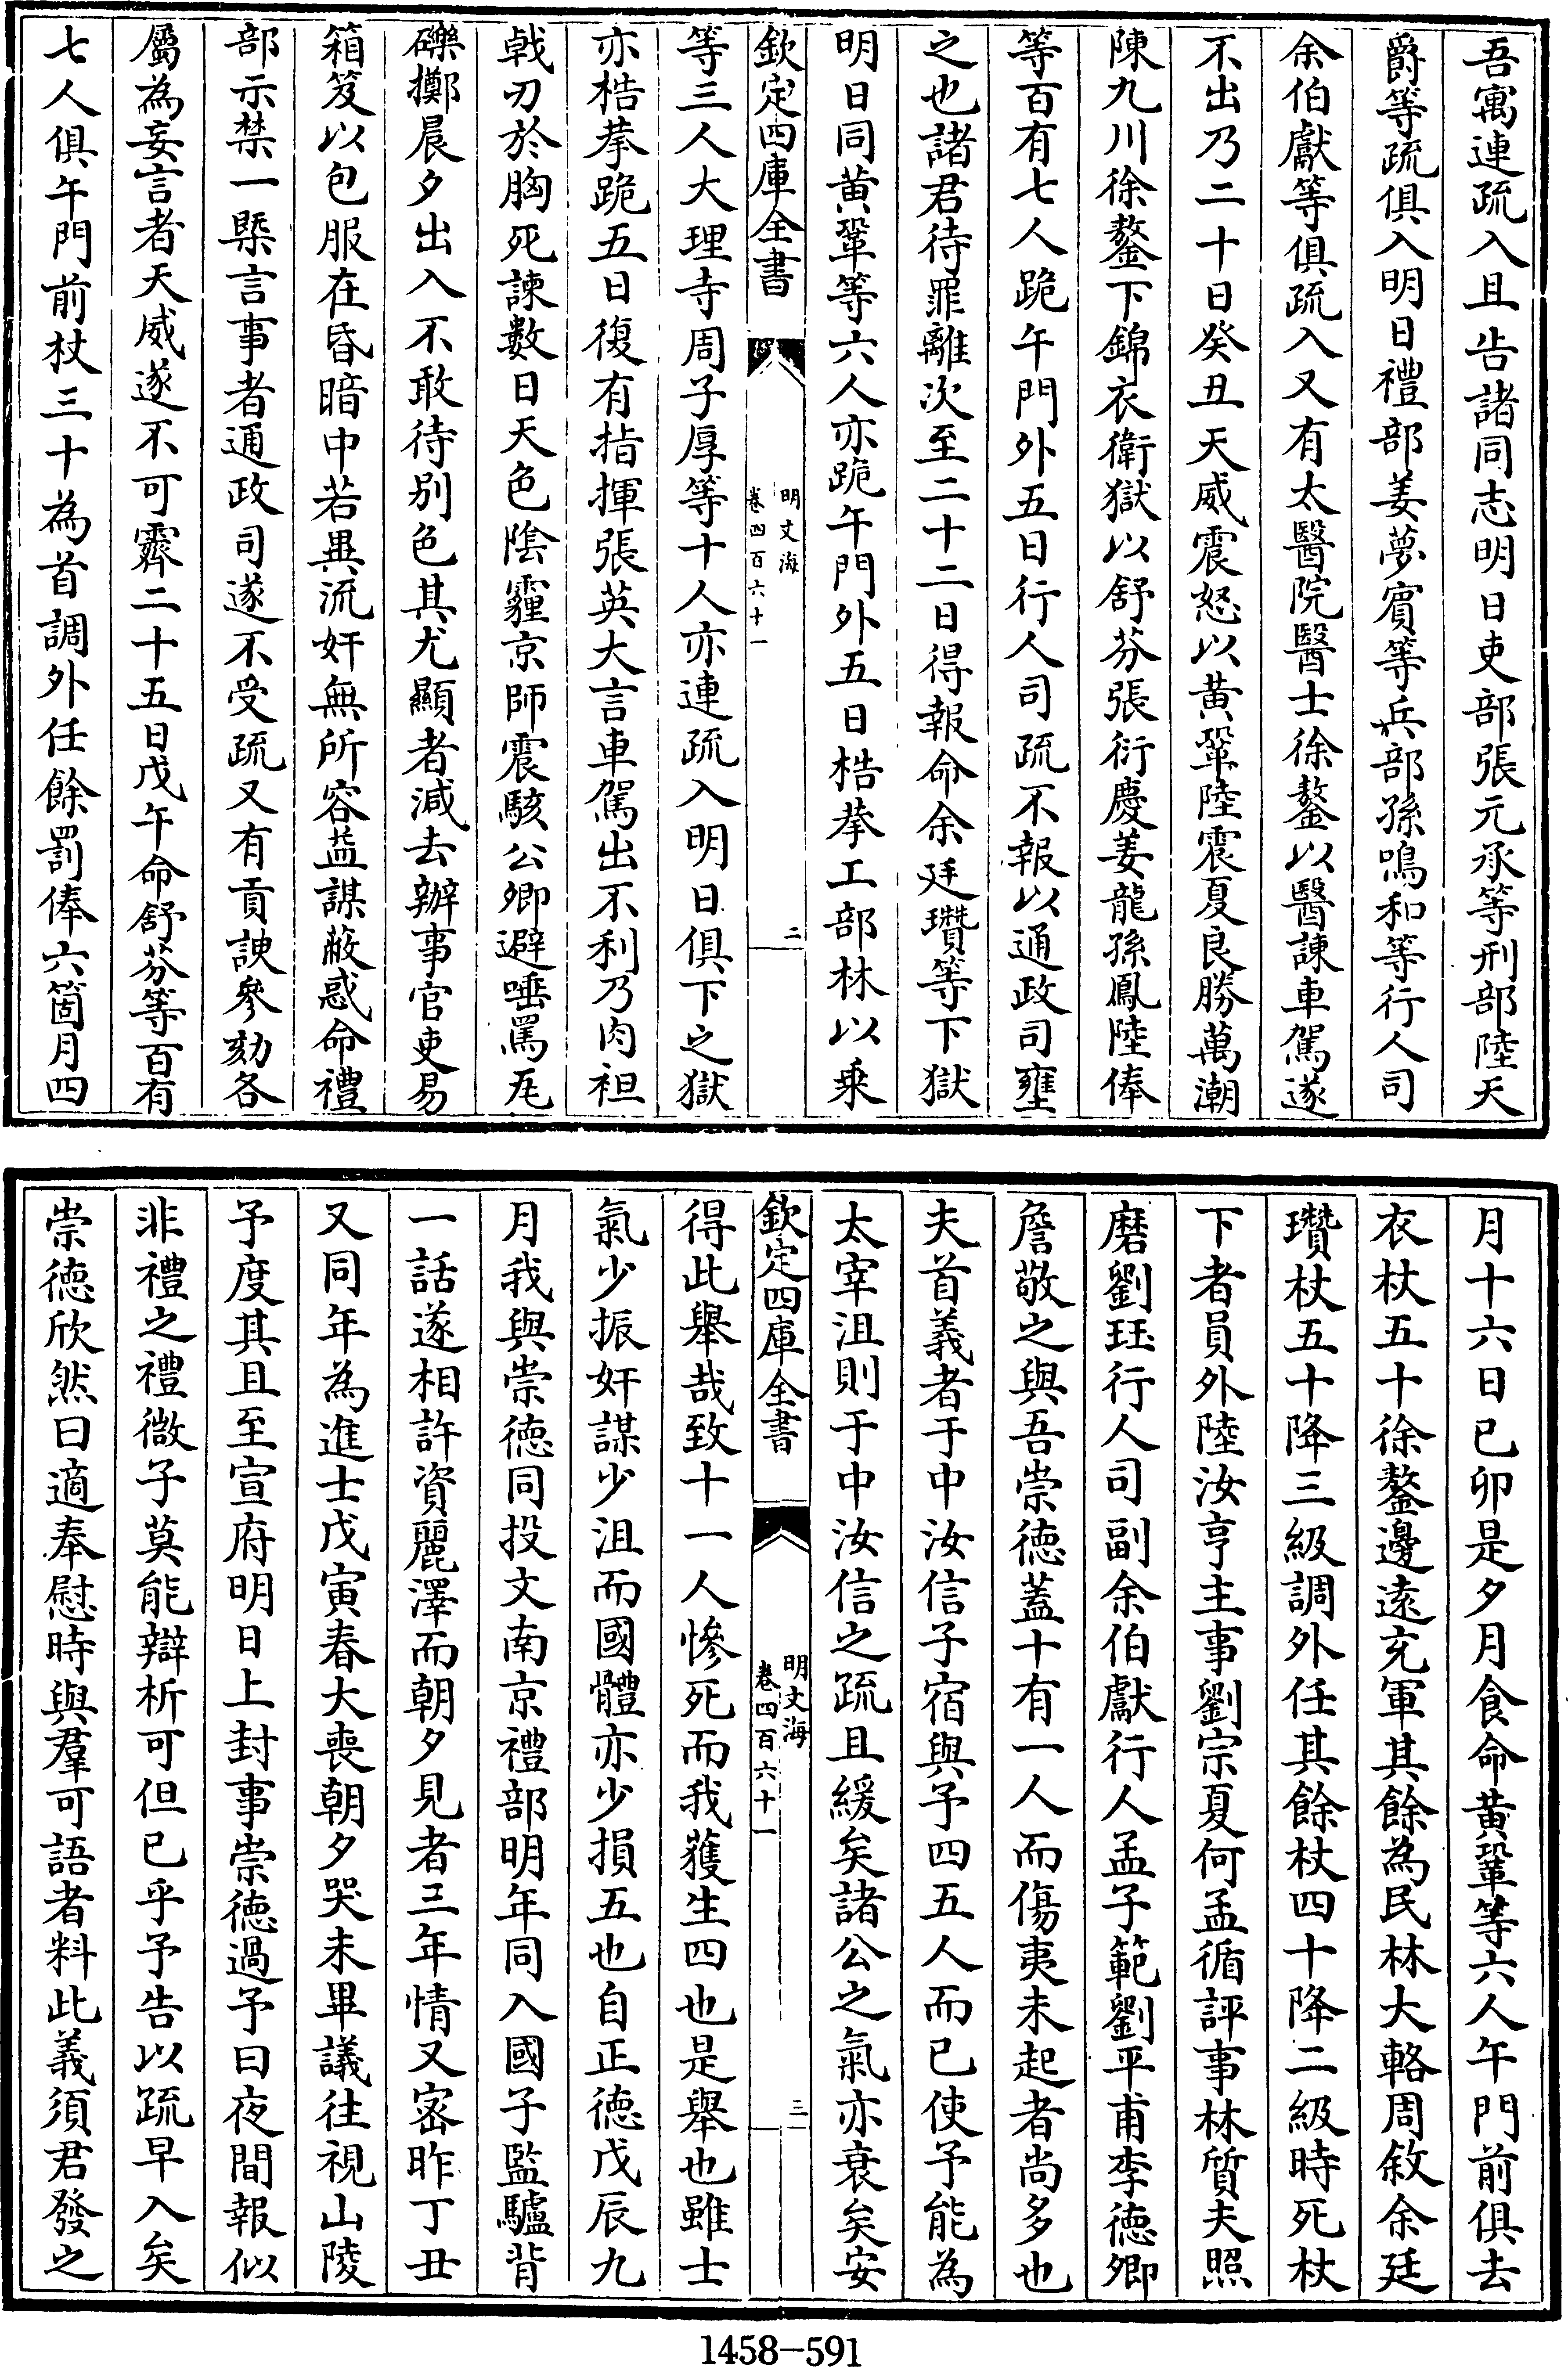 吾寓連疏入且告諸同志明日吏部張元承等刑部陸天
爵等疏俱入明日禮部姜夢賓等兵部孫鳴和等行人司
余伯獻等俱疏入又有太醫院醫士徐鏊以醫諫車駕遂
不出乃二十日癸丑天威震怒以黄鞏陸震夏良勝萬潮
陳九川徐鏊下錦衣衛獄以舒芬張衍慶姜龍孫鳳陸俸
等百有七人跪午門外五日行人司疏不報以通政司壅
之也諸君待罪離次至二十二日得報命余廷瓚等下獄
明日同黄鞏等六人亦跪午門外五日梏拲工部林以乗
欽定四庫全書
明文海
卷四百六十一
二
等三人大理寺周子厚等十人亦連疏入明日俱下之獄
亦梏拲跪五日復有指揮張英大言車駕出不利乃肉袒
戟刃於胸死諫數日天色陰霾京師震駭公卿避唾罵瓦
礫擲晨夕出入不敢待别色其尤顯者減去辦事官吏易
箱笈以包服在昏暗中若異流奸無所容益謀蔽惑命禮
部示禁一槩言事者通政司遂不受疏又有貢諛參劾各
屬為妄言者天威遂不可霽二十五日戊午命舒芬等百有
七人俱午門前杖三十為首調外任餘罰俸六箇月四
月十六日已卯是夕月食命黄鞏等六人午門前俱去
衣杖五十徐鏊邊遠充軍其餘為民林大輅周敘余廷
瓚杖五十降三級調外任其餘杖四十降二級時死杖
下者員外陸汝亨主事劉宗夏何孟循評事林質夫照
磨劉珏行人司副余伯獻行人孟子範劉平甫李德卿
詹敬之與吾崇德蓋十有一人而傷夷未起者尚多也
夫首義者于中汝信子宿與予四五人而已使予能為
太宰沮則于中汝信之疏且緩矣諸公之氣亦衰矣安
欽定四庫全書
明文海
卷四百六十一
三
得此舉哉致十一人慘死而我獲生四也是舉也雖士
氣少振奸謀少沮而國體亦少損五也自正德戊辰九
月我與崇德同投文南京禮部明年同入國子監驢背
一話遂相許資麗澤而朝夕見者三年情又宻昨丁丑
又同年為進士戊寅春大喪朝夕哭未畢議往視山陵
予度其且至宣府明日上封事崇德過予曰夜間報似
非禮之禮微子莫能辯析可但已乎予告以疏早入矣
崇德欣然曰適奉慰時與羣可語者料此義須君發之
1458-591